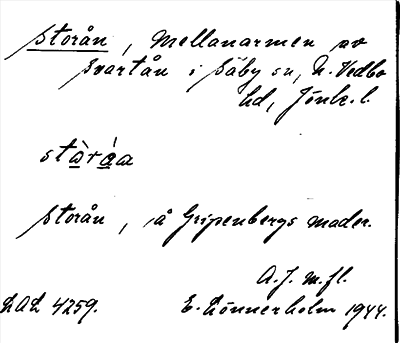 Storån, Mellanarmen av
Svartån i Säby sn, N. Vedbo
hd, Jönk. l.
stàráa
Storån, å Gripenbergs mader.
A.J. m.fl.
LAL 4259. E. Lönnerholm 1944.